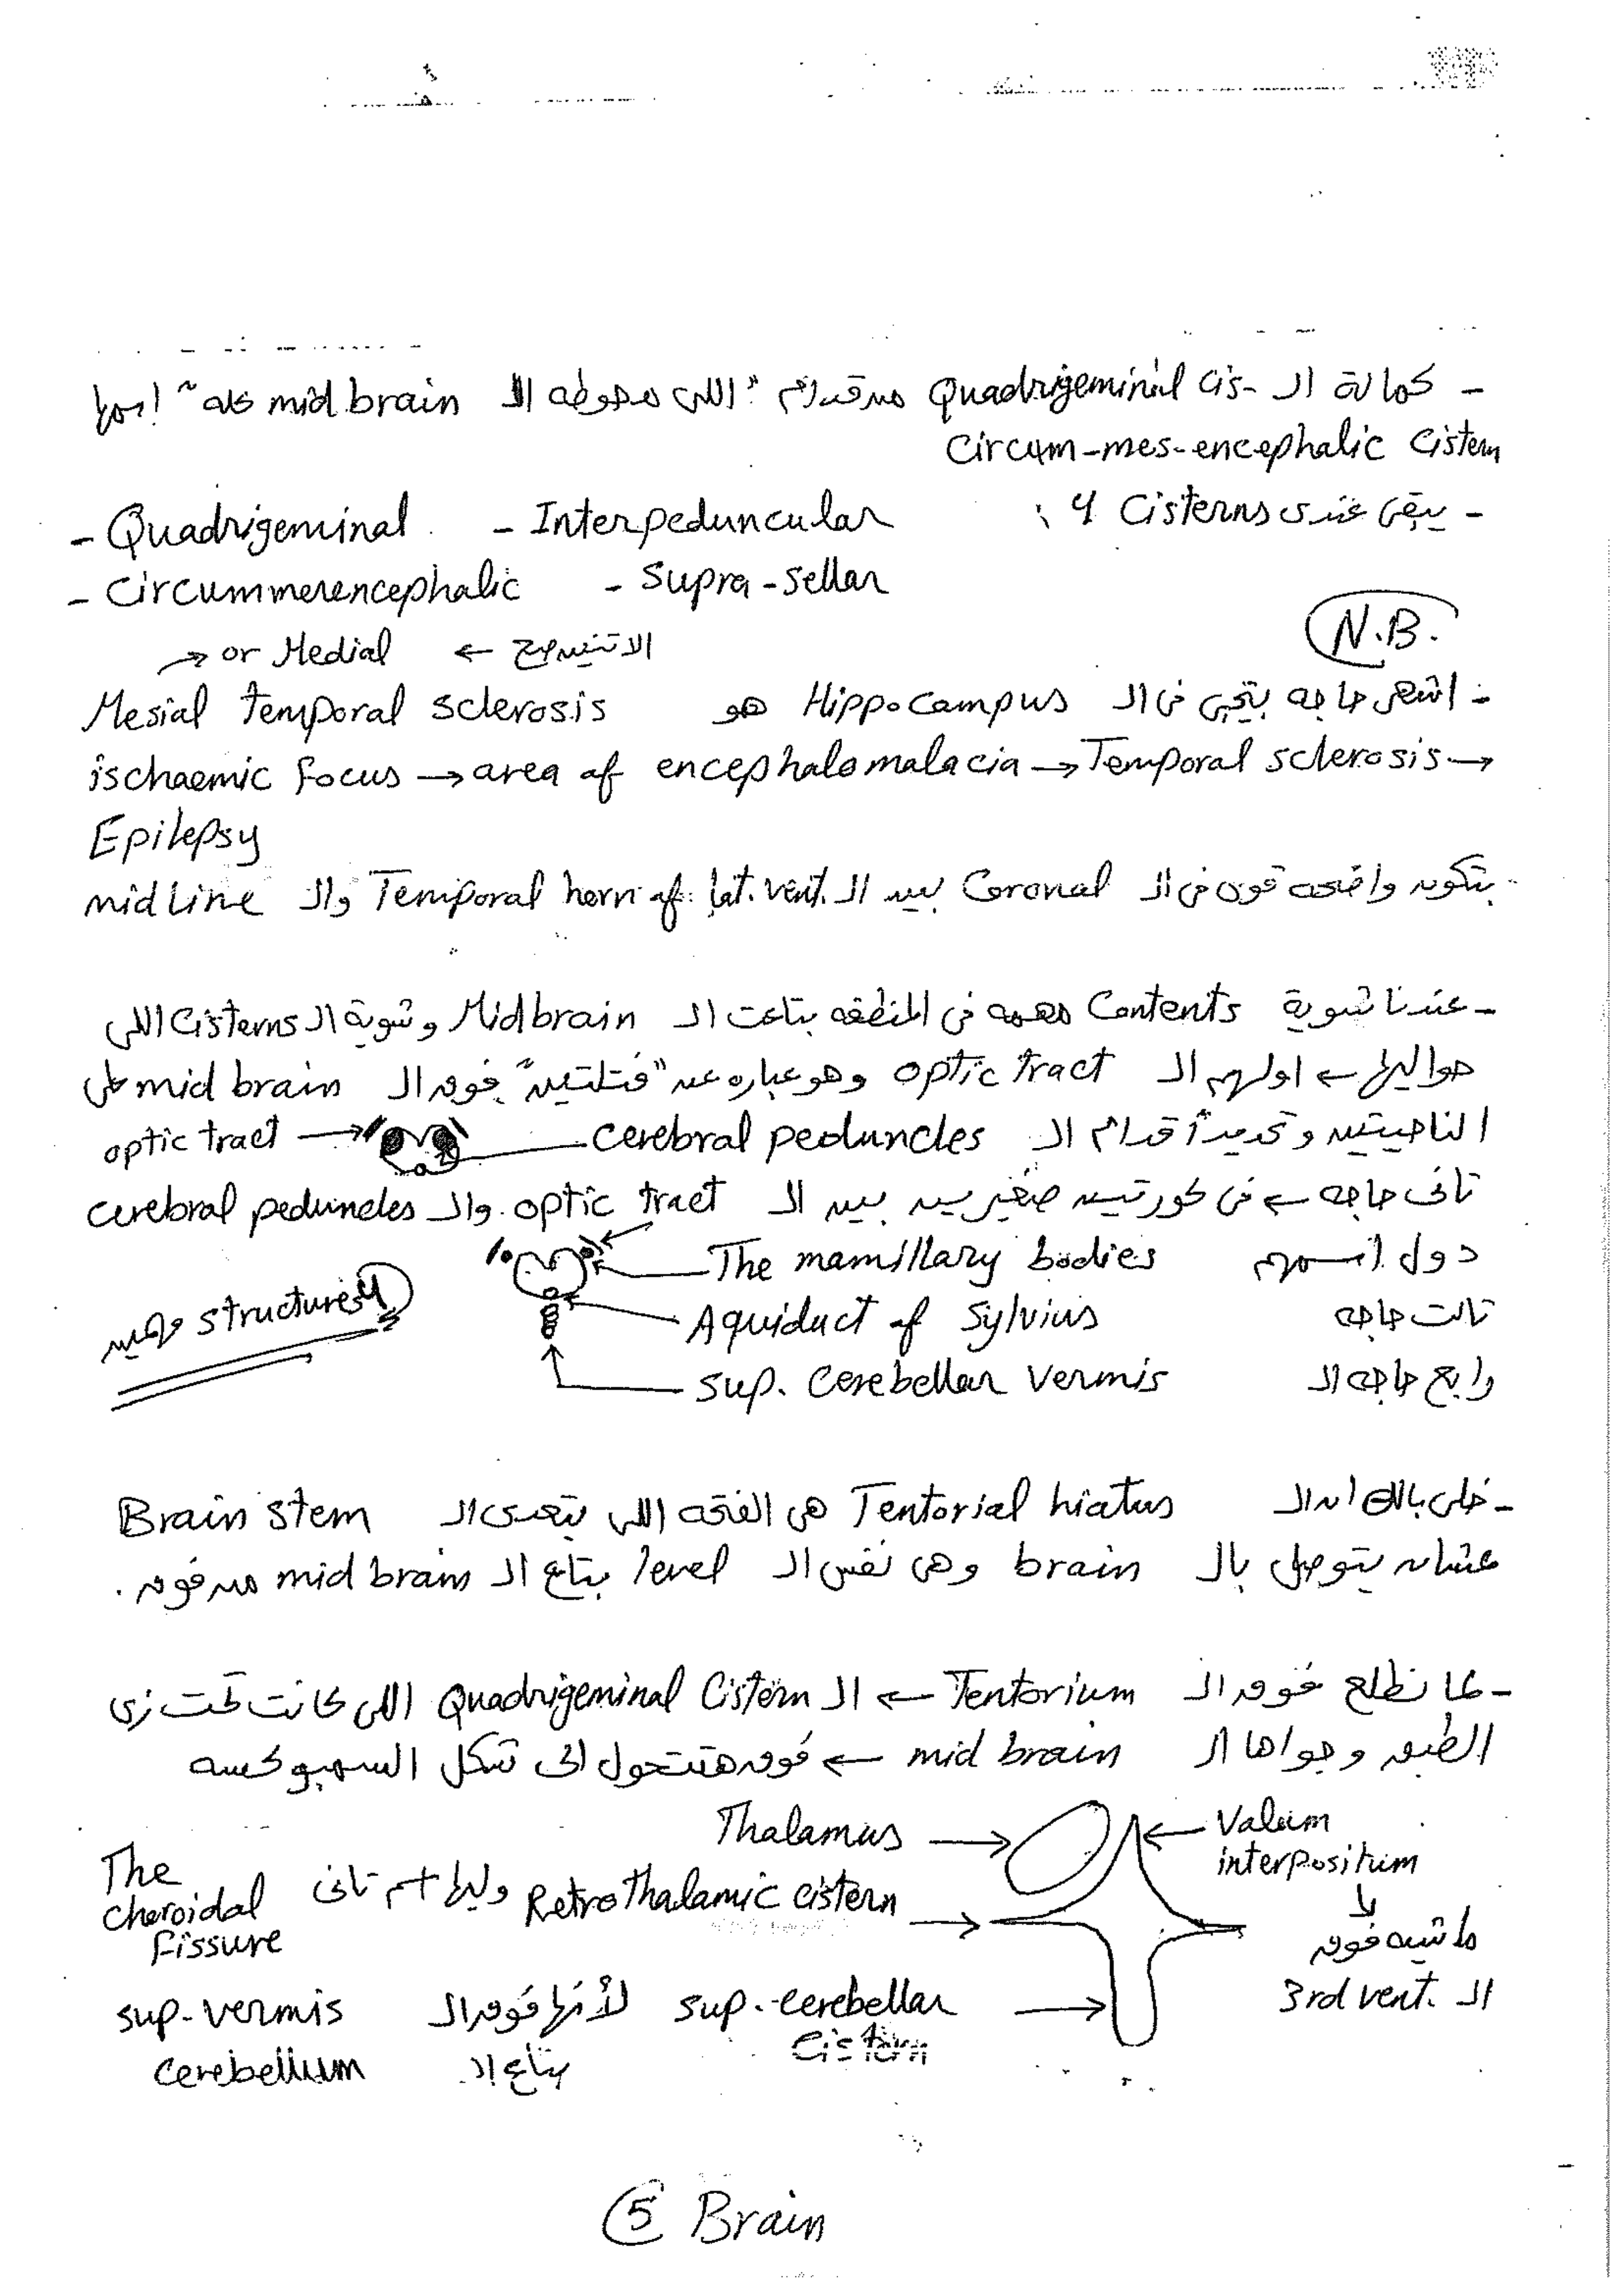 - كمالة الـ Quadrigeminal cis- من قدام "اللى محوطه الـ mid brain كله" اسمها
Circum-mes-encephalic Cistern
- يبقى عندى 4 Cisterns :
- Quadrigeminal - Interpeduncular
- Circummerencephalic - Supra-sellar
N.B.
or Medial ← الاتنين صح
- اشهر حاجه بتيجى فى الـ Hippocampus هو Mesial temporal sclerosis
ischaemic focus → area of encephalomalacia → Temporal sclerosis →
Epilepsy
بتكون واضحه قوى فى الـ Coronal بين الـ Temporal horn of lat. vent. والـ midline
- عندنا شوية Contents مهمه فى المنطقه بتاعت الـ Midbrain وشوية الـ Cisterns اللى
حواليها ← اولهم الـ optic tract وهو عباره عن "فتلتين" فوق الـ mid brain على
الناحيتين وتحديداً قدام الـ cerebral peduncles
optic tract →
تانى حاجه ← فى كورتين صغيرين بين الـ optic tract والـ cerebral peduncles
دول اسمهم The mamillary bodies
تالت حاجه Aquiduct of Sylvius
رابع حاجه الـ sup. Cerebellar vermis
4 structures مهمين
- خلى بالك ان الـ Tentorial hiatus هى الفتحه اللى بتعدى الـ Brain stem
عشان يتوصل بالـ brain وهى نفس الـ level بتاع الـ mid brain من فوق .
- لما نطلع فوق الـ Tentorium ← الـ Quadrigeminal Cistern اللى كانت تحت زى
الطبق وجواها الـ mid brain ← فوق هتتحول الى شكل السمبوكسه
Thalamus → ← Valum
interpositum
ماشيه فوق
الـ 3rd vent.
Retrothalamic cistern → وليها اسم تانى The
choroidal
fissure
sup. cerebellar → لأنها فوق الـ sup. vermis
cistern بتاع الـ cerebellum
5 Brain